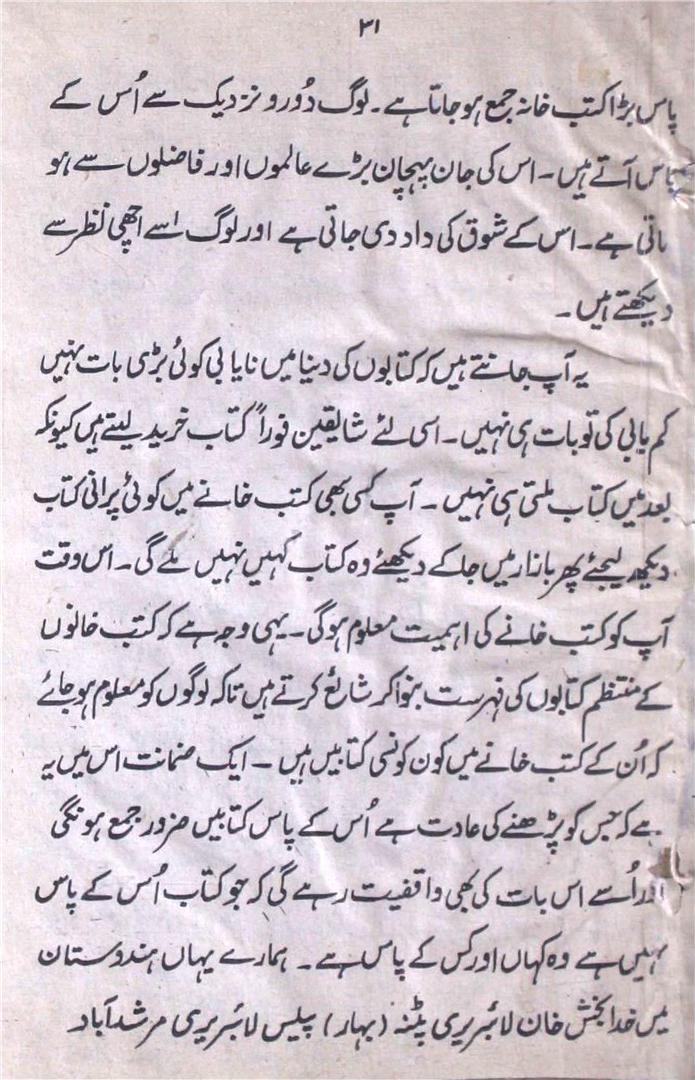 ۳۱
پاس بڑا کتب خانہ جمع ہو جاتا ہے۔ لوگ دُور و نزدیک سے اُس کے
پاس آتے ہیں۔ اس کی جان پہچان بڑے عالموں اور فاضلوں سے ہو
جاتی ہے۔ اس کے شوق کی داد دی جاتی ہے اور لوگ اسے اچھی نظر سے
دیکھتے ہیں۔
یہ آپ جانتے ہیں کہ کتابوں کی دنیا میں نایابی کوئی بڑی بات نہیں
کم یابی کی تو بات ہی نہیں۔ اسی لئے شایقین فوراً کتاب خرید لیتے ہیں کیونکہ
بعد میں کتاب ملتی ہی نہیں۔ آپ کسی بھی کتب خانے میں کوئی پرانی کتاب
دیکھ لیجئے پھر بازار میں جا کے دیکھئے وہ کتاب کہیں نہیں ملے گی۔ اس وقت
آپ کو کتب خانے کی اہمیت معلوم ہو گی۔ یہی وجہ ہے کہ کتب خانوں
کے منتظم کتابوں کی فہرست بنوا کر شائع کرتے ہیں تاکہ لوگوں کو معلوم ہو جائے
کہ اُن کے کتب خانے میں کون کونسی کتابیں ہیں۔ ایک ضمانت اس میں یہ
ہے کہ جس کو پڑھنے کی عادت ہے اُس کے پاس کتابیں ضرور جمع ہونگی
اور اُسے اس بات کی بھی واقفیت رہے گی کہ جو کتاب اُس کے پاس
نہیں ہے وہ کہاں اور کس کے پاس ہے۔ ہمارے یہاں ہندوستان
میں خدا بخش خان لائبریری پٹنہ (بہار) پیلیس لائبریری مرشد آباد